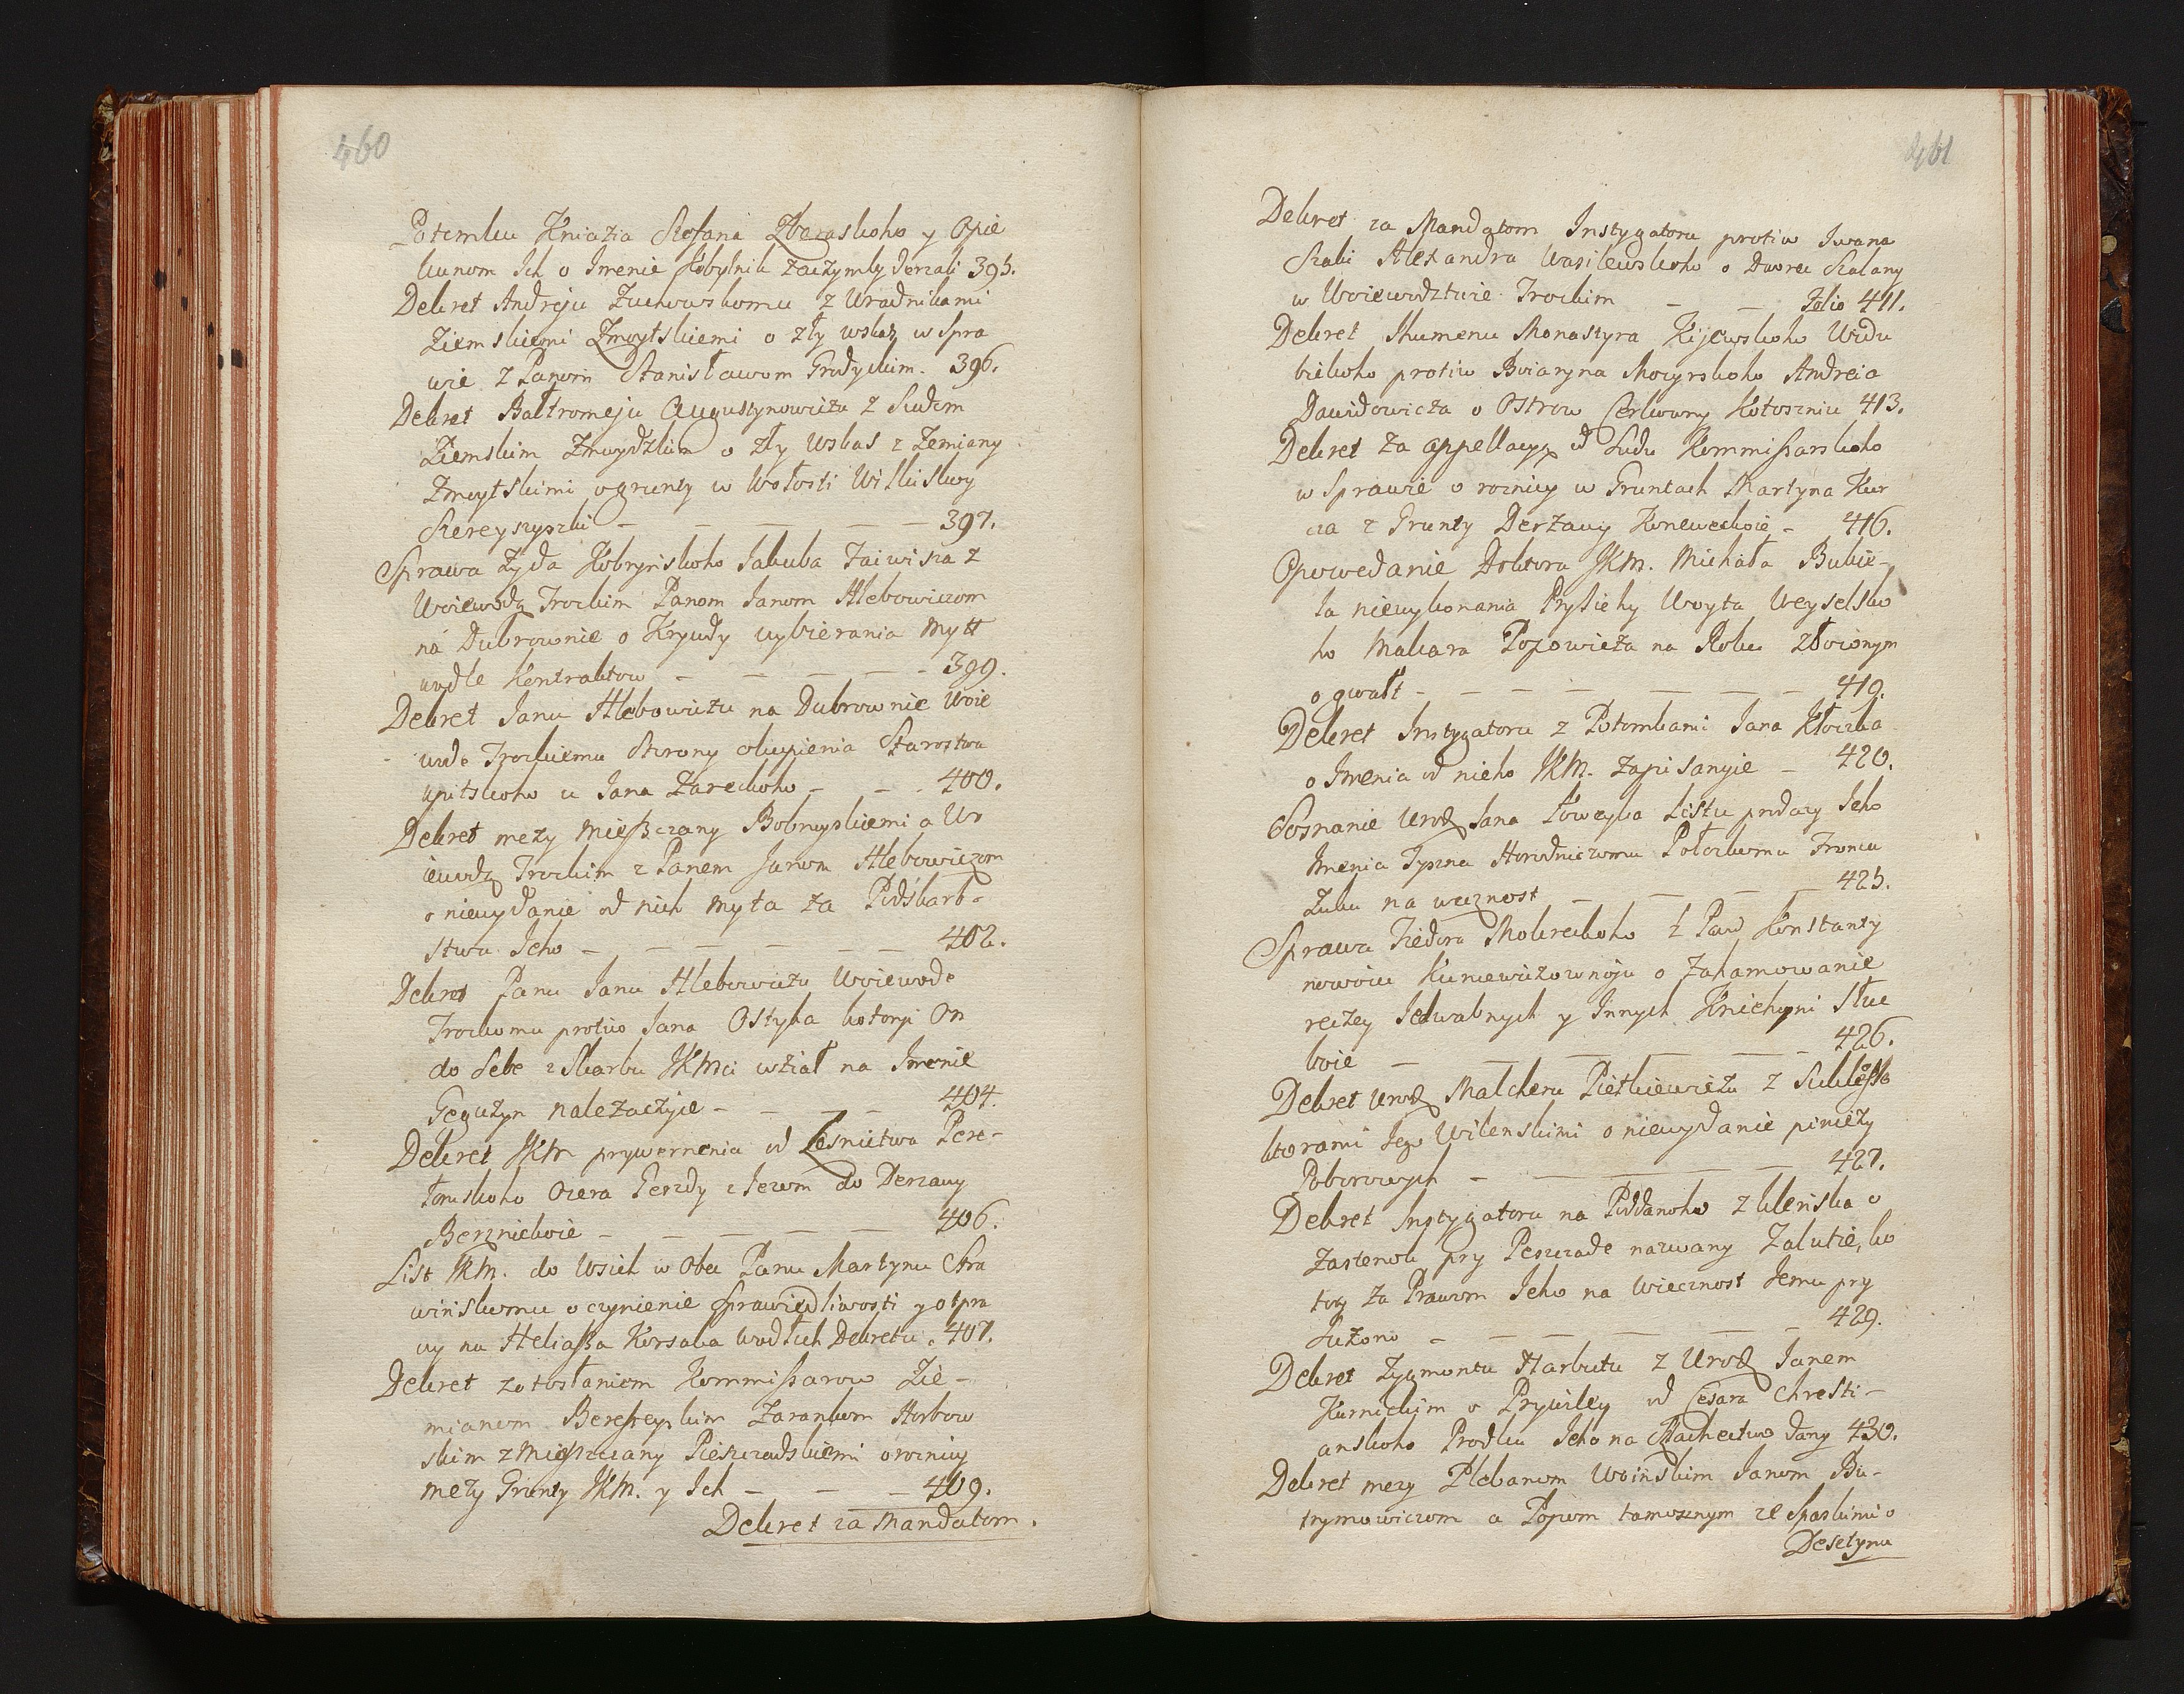 460
Potomku Kniazia Stefana Zbaraskoho y Opie
kunom Ich o Imenie Kobylnik Zaczymby Jerzali 395.
Dekret Andreju Zuchowskomu z Uradnikami
Ziemskiemi Zmoytskiemi o zły wskaz w Spra
wie z Panom Stanisławom Grudyckim. 396.
Dekret Bałtromeju Augustynowiczu z Sudom
Ziemskim Zmuydzkim o zły Wskas z Zemiany
Zmoytskimi o grunty w Wołosti Wilkiskoy
Szereyszyszki — — — — 397.
Sprawa Zyda Kobrynskoho Jakuba Faiwisza z
Woiewodą Trockim Panom Janom Hlebowiczom
na Dubrownie o Krywdy wybierania Mytt
wodle Kontraktow — — — — 399.
Dekret Janu Hlebowiczu na Dubrownie Woie
wode Trockiemu Storony okupienia Starostwa
Upitskoho u Jana Zareckoho — — 400.
Dekret mezy Mieszczany Bobruyskiemi a Wo
iewodą Trockim z Panem Janom Hlebowiczom
o niewydanie od nich Myta za Pidskarb-
stwa Jeho — — — — — 402.
Dekret Panu Janu Hlebowiczu Woiewode
Trockomu protiw Jana Ostyka kotoryi On
do Sebe z Skarbu JKMci wział na Imenie
Geguzyn nalezaczyie — — — 404.
Dekret JKM prywernenia od Lesnictwa Pere-
łomskoho Ozera Gerzdy z Jezom do Derzawy
Berznickoie — — — — 406.
List JKM. do Wsich w Obec Panu Martynu Stra
winskomu o czynienie Sprawiedliwosti y otpra
wy na Heliasza Korsaka wodłuh Dekretu. 407.
Dekret zotosłaniem Kommissarow Zie-
mianom Beresteyskim Zarankom Horbow
skim z Mieszczany Pieszczadskiemi o roznicy
mezy Grunty JKM. y Ich — — — 409.
Dekret za Mandatom.
461
Dekret za Mandatom Instygatora protiw Iwana
Skabi Alexandra Wasilewskoho o Dworec Skalany
w Woiewodztwie Trockim — — Folio 411.
Dekret Ihumenu Monastyra Kijewskoho Widu
bickoho protiw Boiaryna Mozyrskoho Andreia
Dawidowicza o Ostrow Cerkowny Kotoszniu 413.
Dekret Za appellacyą od Sudu Kommissarskoho
w Sprawie o roznicy w Gruntach Martyna Kur
cza z Grunty Derzawy Koneweckoie — 416.
Opowedanie Doktora JKM. Michała Bukie-
la niewykonania Prysiehy Woyta Weyselsko
ho Makara Popowicza na Roku złozonym
o gwałt — — — — — — 419.
Dekret Instygatora z Potomkami Jana Kłoczka
o Imenia od nieho JKM. Zapisanyie — 420.
Soznanie Urod Jana Łoweyka Listu prodazy Jeho
Imenia Tyszna Horodniczomu Połockomu Froncu
Zuku na wecznost — — — — 425.
Sprawa Fiedora Mokreckoho z Paniej Konstanty
nowoiu Kuncewiczownoju o Zahamowanie
reczey Jedwabnych y Innych Kniehyni Słuc
koie — — — — — 426.
Dekret Urod Malcheru Pietkiewiczu z Sukcesso
ktorami Jego Wilenskimi o niewydanie pinezy
Poborowych — — — — 427.
Dekret Instygatora na Poddanoho z Kleńska o
Zastenok pry Peszczade nazwany Zalutie, ko
tory za Prawom Jeho na Wiecznost Jemu pry
Sużono — — — — — 429.
Dekret Zygmontu Harbutu z Urod Janem
Kurnickim o Prywiley od Cesara Chresti-
anskoho Prodku Jeho na Szlachectwo dany 430.
Dekret mezy Plebanom Woinskim Janom Bu-
trymowiczom a Popom tamosznym ze Spaskimi o
Desetynu